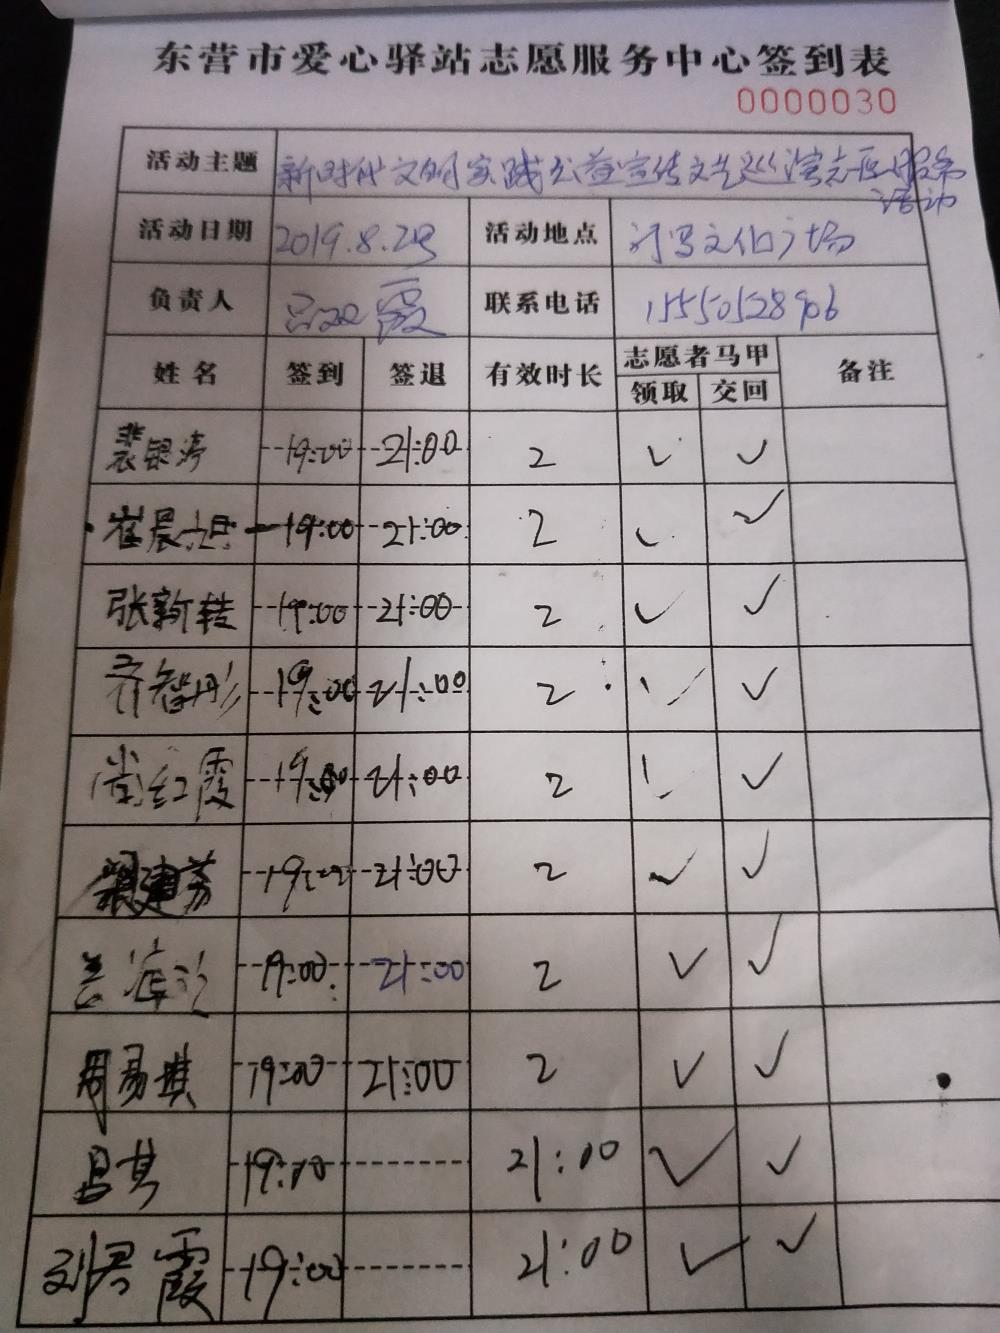 东营市爱心驿站志愿服务中心签到表
0000030
活动主题 新时代文明实践公益宣传文艺巡演志愿服务
活动
活动日期 2019.8.28 活动地点 文化广场
负责人 霞 联系电话 15550528906
姓名 签到 签退 有效时长 志愿者马甲 备注
领取 交回
裴银涛 19:00 21:00 2 ✓ ✓
崔晨旭 19:00 21:00 2 ✓ ✓
张新喆 19:00 21:00 2 ✓ ✓
齐智彤 19:00 21:00 2 ✓ ✓
尚红霞 19:00 21:00 2 ✓ ✓
梁建芬 19:00 21:00 2 ✓ ✓
19:00 21:00 2 ✓ ✓
周易琪 19:00 21:00 2 ✓ ✓
19:00 21:00 ✓ ✓
刘君霞 19:00 21:00 ✓ ✓